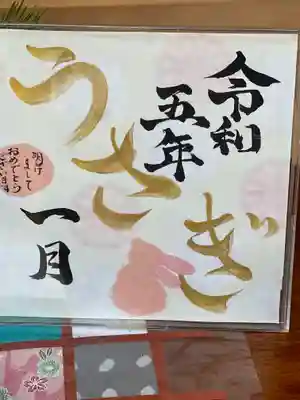 令和
五年
うさぎ
一月
明け
まして
おめでとう
ございます